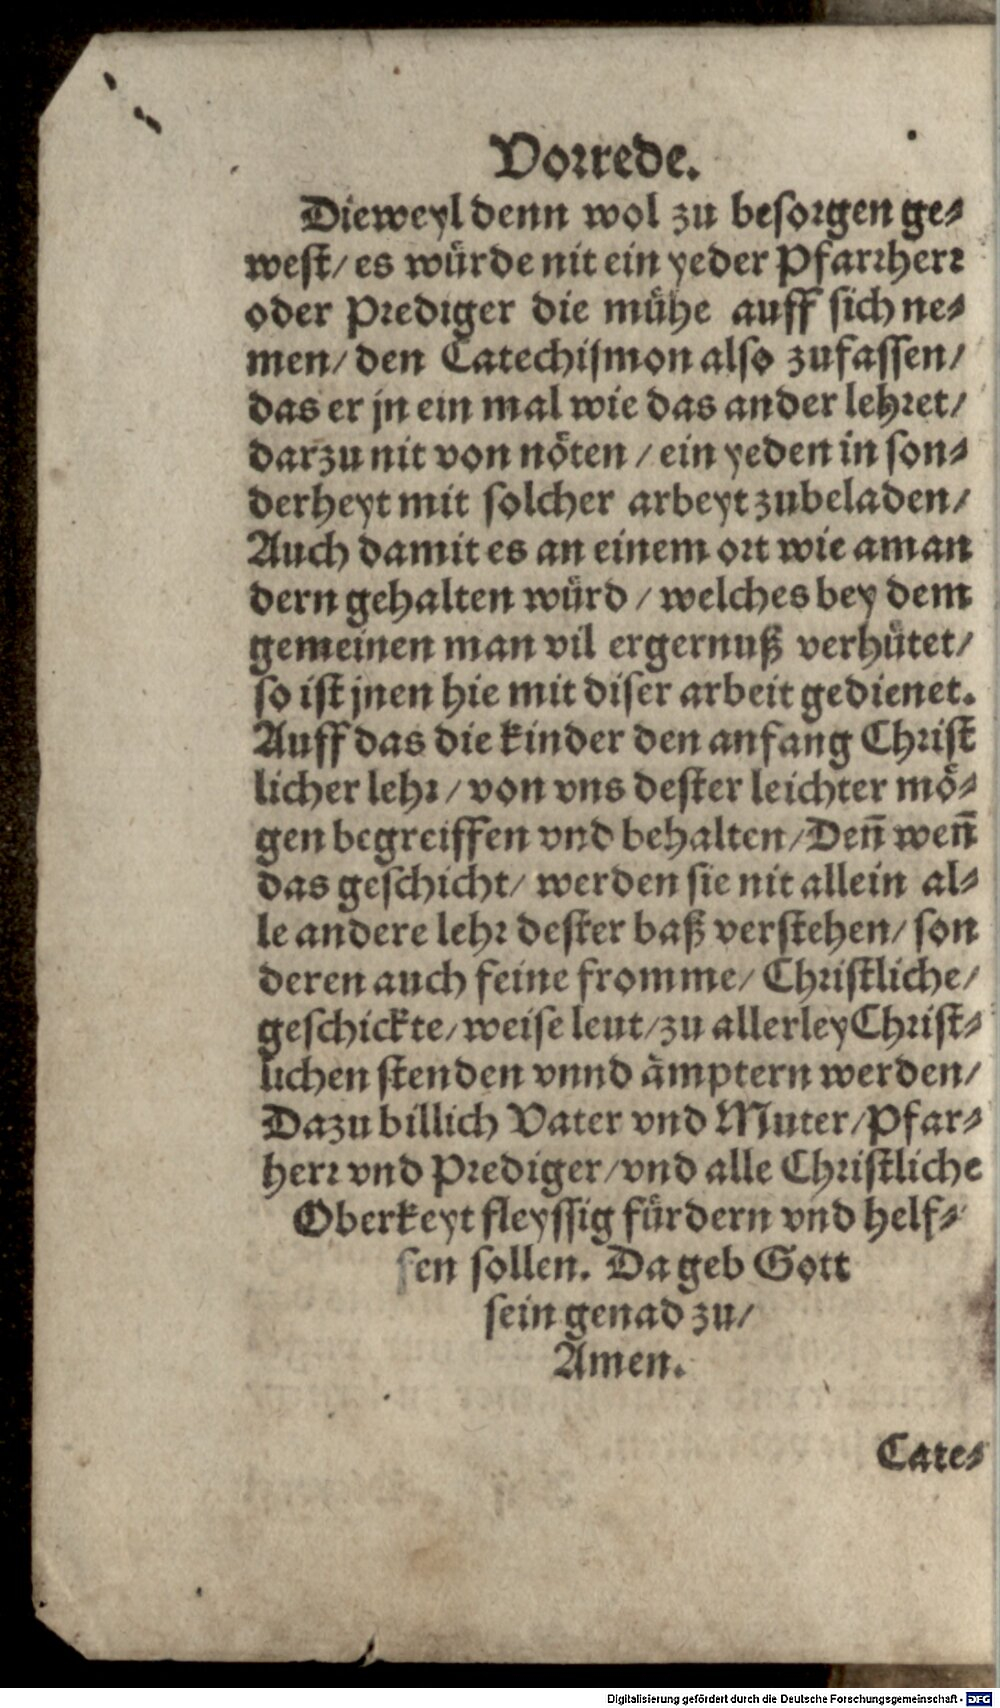 Vorrede.
Dieweyl denn wol zu besorgen ge⸗
west/ es würde nit ein yeder Pfarrherr
oder Prediger die mühe auff sich ne⸗
men/ den Catechismon also zufassen/
das er jn ein mal wie das ander lehret/
darzu nit von nöten / ein yeden in son⸗
derheyt mit solcher arbeyt zubeladen/
Auch damit es an einem ort wie am an
dern gehalten würd / welches bey dem
gemeinen man vil ergernuß verhütet/
so ist jnen hie mit diser arbeit gedienet.
Auff das die kinder den anfang Christ
licher lehr / von vns dester leichter mö⸗
gen begreiffen vnd behalten/ Deñ weñ
das geschicht/ werden sie nit allein al⸗
le andere lehr dester baß verstehen/ son
deren auch feine fromme/ Christliche/
geschickte/ weise leut/ zu allerley Christ⸗
lichen stenden vnnd ämptern werden/
Dazu billich Vater vnd Muter/ Pfar⸗
herr vnd Prediger/ vnd alle Christliche
Oberkeyt fleyssig fürdern vnd helf⸗
fen sollen. Da geb Gott
sein genad zu/
Amen.
Cate⸗
Digitalisierung gefördert durch die Deutsche Forschungsgemeinschaft - DFG